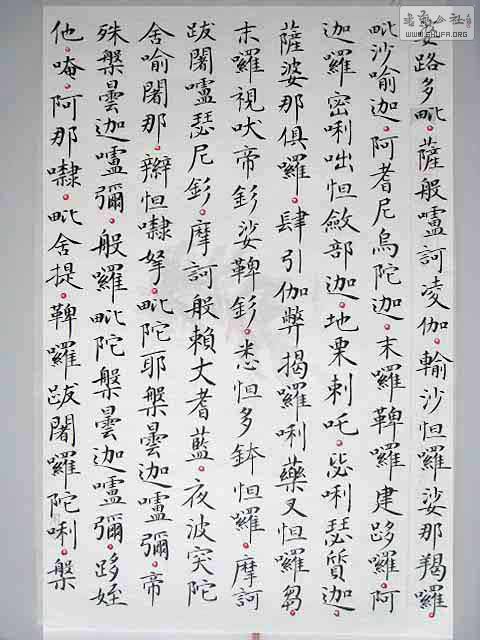 書法公社
WWW.SHUFA.ORG
婆路多毗薩般嚧訶凌伽輸沙怛囉娑那羯囉
毗沙喻迦阿耆尼烏陀迦末囉鞞囉建跢囉阿
迦囉密唎咄怛斂部迦地栗剌吒毖唎瑟質迦
薩婆那俱囉肆引伽弊揭囉唎藥叉怛囉芻
末囉視吠帝釤娑鞞釤悉怛多鉢怛囉摩訶
跋闍嚧瑟尼釤摩訶般賴丈耆藍夜波突陀
舍喻闍那辮怛㘑拏毗陀耶槃曇迦嚧彌帝
殊槃曇迦嚧彌般囉毗陀槃曇迦嚧彌跢姪
他唵阿那㘑毗舍提鞞囉跋闍囉陀唎槃